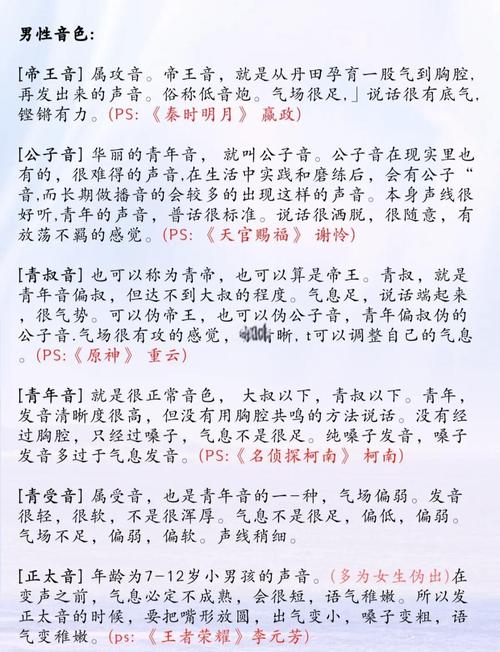 男性音色:
[帝王音] 属攻音。帝王音，就是从丹田孕育一股气到胸腔,
再发出来的声音。俗称低音炮。气场很足,」说话很有底气,
铿锵有力。(PS: 《秦时明月》 嬴政)
[公子音] 华丽的青年音， 就叫公子音。公子音在现实里也
有的, 很难得的声音,在生活中实践和磨练后，会有公子“
音,而长期做播音的会较多的出现这样的声音。本身声线很
好听,青年的声音，普话很标准。说话很洒脱，很随意，有
放荡不羁的感觉。(PS: 《天官赐福》 谢怜)
[青叔音] 也可以称为青帝，也可以算是帝王。青叔，就是
青年音偏叔，但达不到大叔的程度。气息足，说话端起来
，很气势。可以伪帝王，也可以伪公子音，青年偏叔伪的
公子音.气场很有攻的感觉, 晰, t可以调整自己的气息
。(PS:《原神》 重云)
[青年音] 就是很正常音色， 大叔以下，青叔以下。青年,
发音清晰度很高，但没有用胸腔共鸣的方法说话。没有经
过胸腔，只经过嗓子，气息不是很足。纯嗓子发音，嗓子
发音多过于气息发音。(PS:《名侦探柯南》 柯南)
[青受音] 属受音，也是青年音的一-种，气场偏弱。发音
很轻，很软，不是很浑厚。气息不是很足，偏低，偏弱。
气场不足，偏弱，偏软。声线稍细。
[正太音] 年龄为7-12岁小男孩的声音。(多为女生伪出)在
变声之前，气息必定不成熟，会很短，语气稚嫩。所以发
正太音的时候，要把嘴形放圆，出气变小，嗓子变粗，语
气变稚嫩。(ps: 《王者荣耀》李元芳)